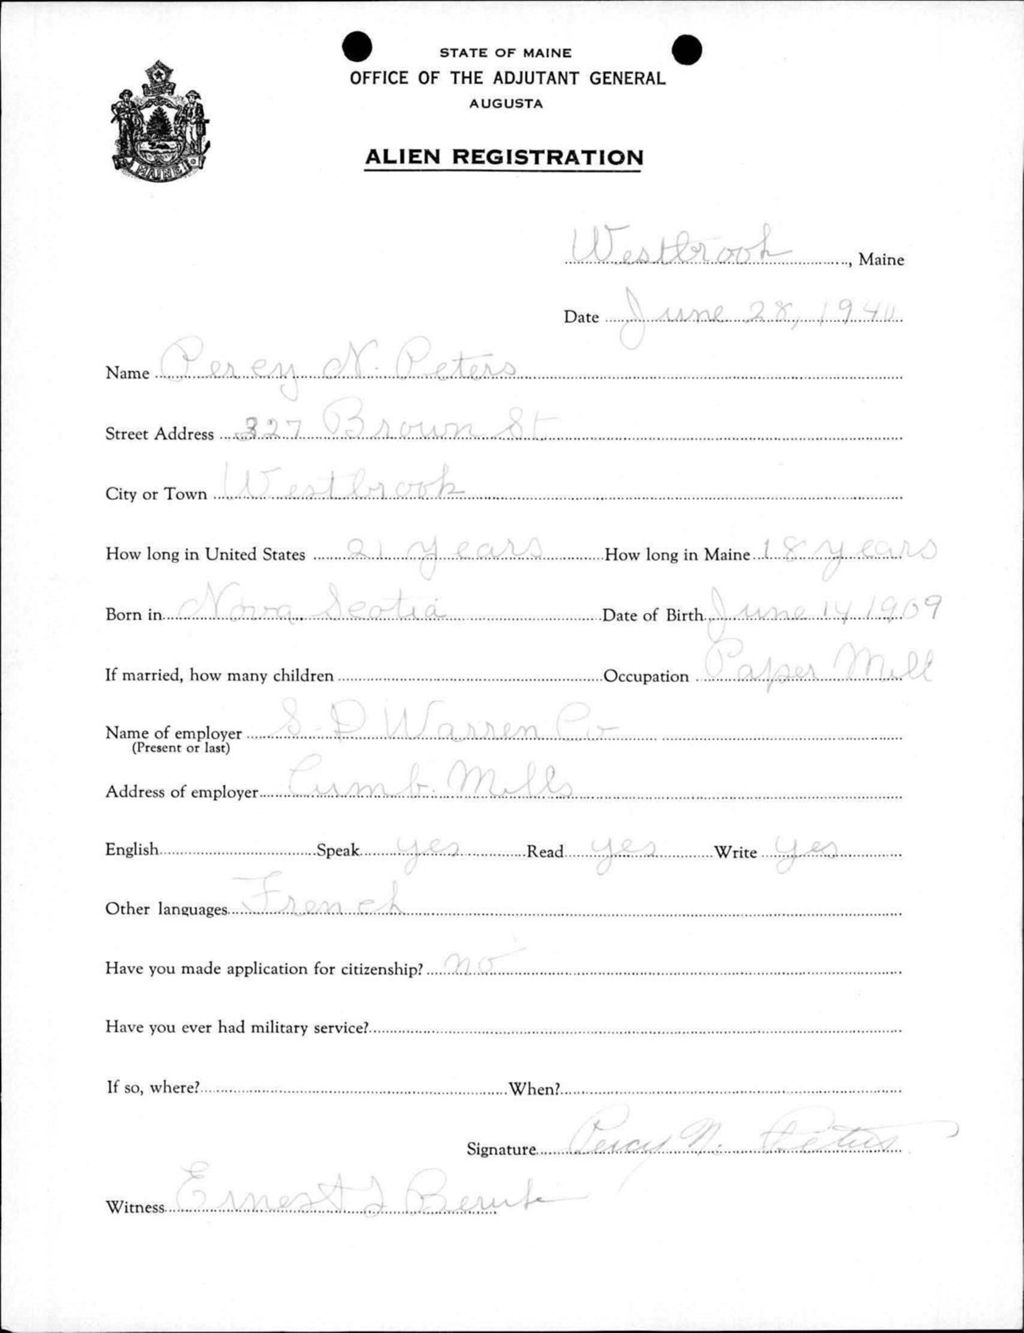 STATE OF MAINE
OFFICE OF THE ADJUTANT GENERAL
AUGUSTA
ALIEN REGISTRATION
MAINE
Westbrook, Maine
Date June 28, 1940
Name Percy N. Peters
Street Address 327 Brown St
City or Town Westbrook
How long in United States 21 years How long in Maine 18 years
Born in Nova Scotia Date of Birth June 14 1909
If married, how many children Occupation Paper Mill
Name of employer S. D Warren Co
(Present or last)
Address of employer Cumb. Mills
English Speak yes Read yes Write yes
Other languages French
Have you made application for citizenship? no
Have you ever had military service?
If so, where? When?
Signature Percy N. Peters
Witness Ernest J Berube